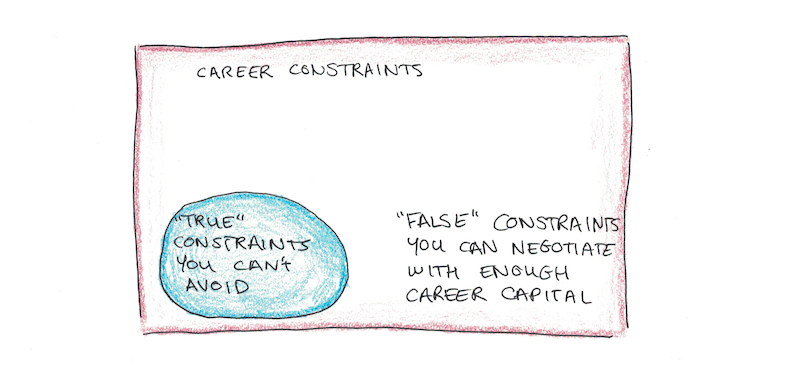 CAREER CONSTRAINTS
"TRUE"
CONSTRAINTS
YOU CAN'T
AVOID
"FALSE" CONSTRAINTS
YOU CAN NEGOTIATE
WITH ENOUGH
CAREER CAPITAL